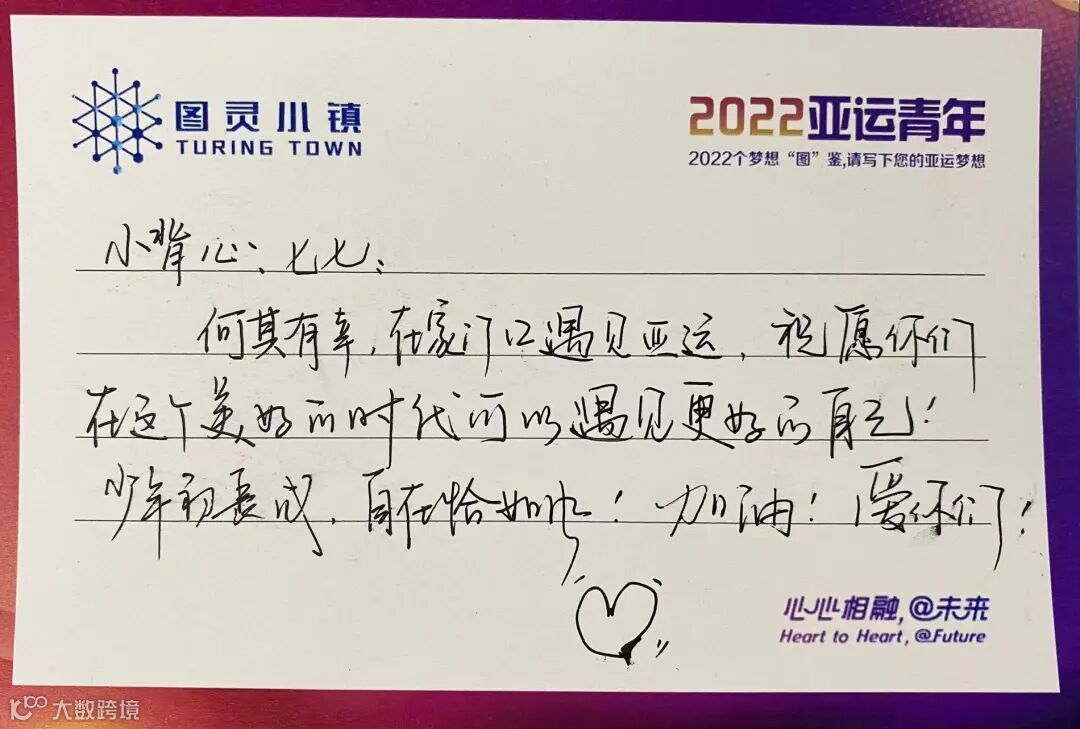 图灵小镇
TURING TOWN
2022亚运青年
2022个梦想“图”鉴,请写下您的亚运梦想
小背心、七七：
何其有幸，在家门口遇见亚运，祝愿你们
在这个美好的时代可以遇见更好的自己！
少年初长成，自在恰如风！加油！爱你们！
心心相融,@未来
Heart to Heart, @Future
大数跨境